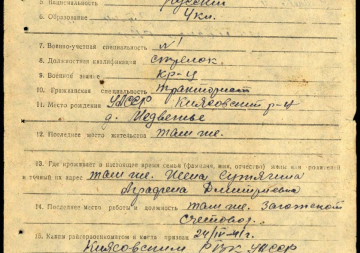 5. Национальность русский
6. Образование 4 кл.
7. Военно-учетная специальность № 1
8. Должностная квалификация стрелок
9. Военное звание кр-ц
10. Гражданская специальность тракторист
11. Место рождения УАССР Киясовский р-н
д. Медвежье
12. Последнее место жительства там же.
13. Где проживает в настоящее время семья (фамилия, имя, отчество) жены или родителей
и точный их адрес там же. Жена
Аграфена Дмитриевна
14. Последнее место работы и должность там же.
Счетовод.
15. Каким райвоенкоматом и когда призван 24/IV-41г.
Киясовским РВК УАССР